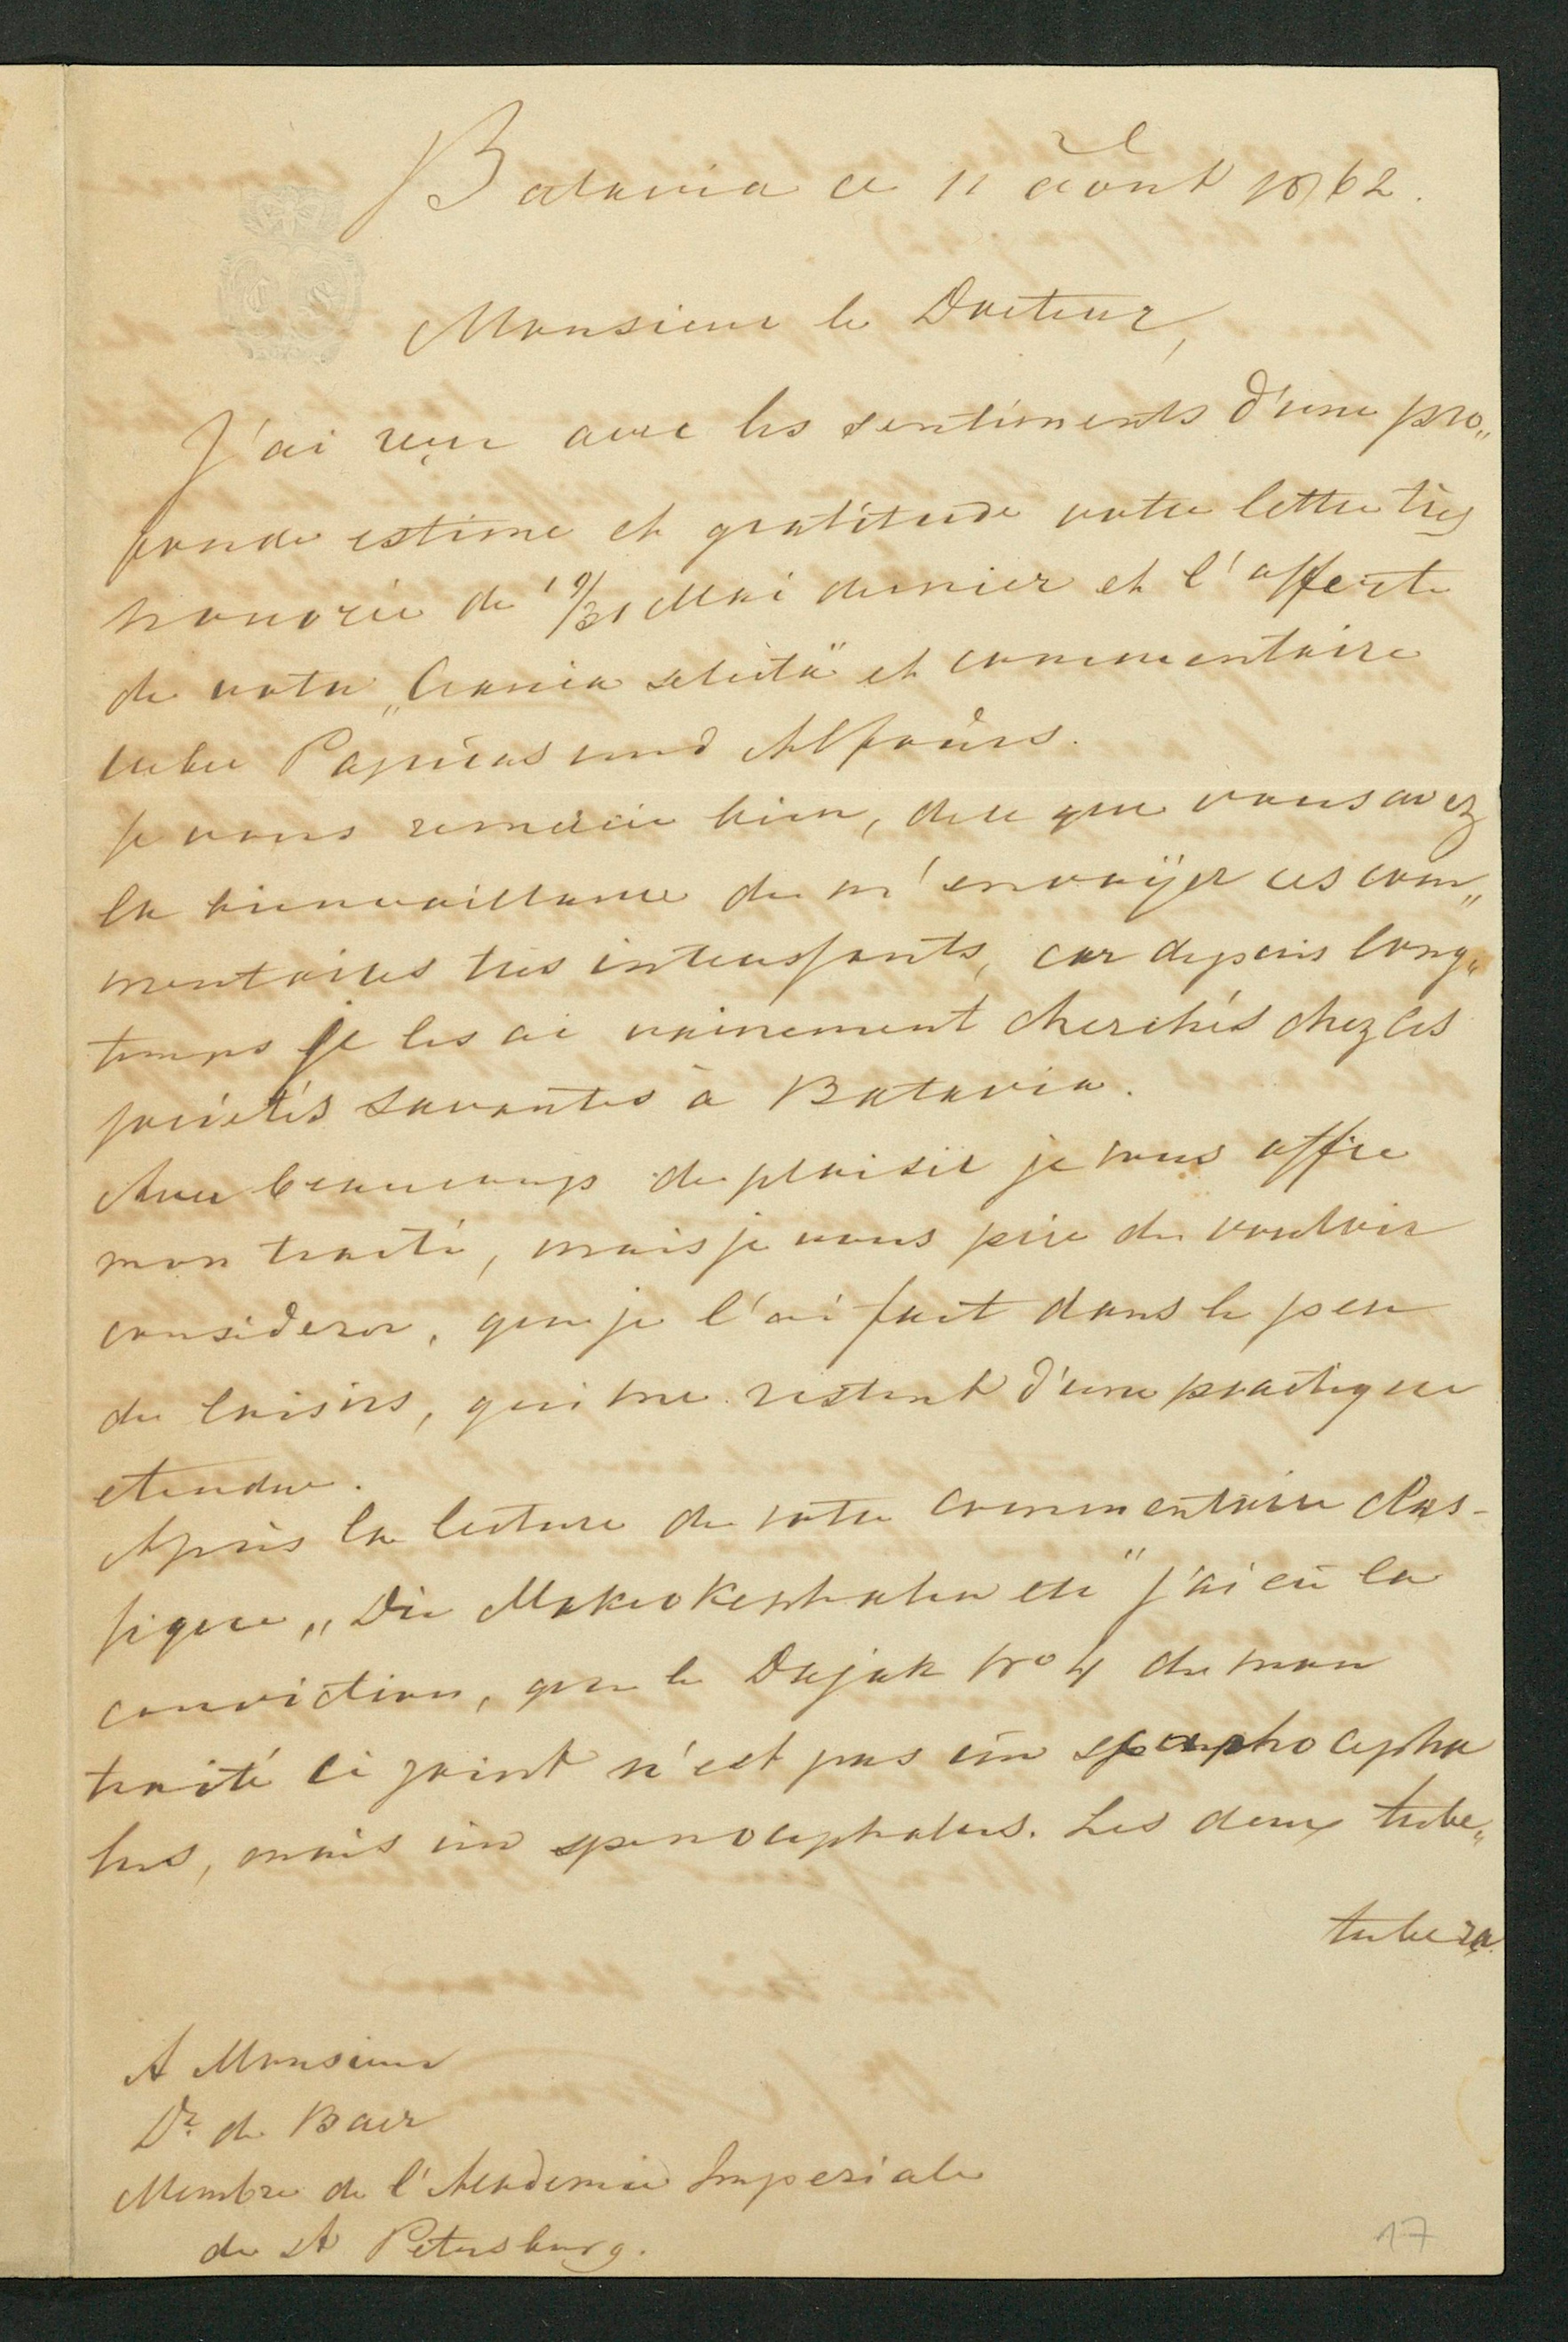 Batavia ce 11 août 1862.
Monsieur le Docteur,
J'ai reçu avec les sentiments d'une pro„
fonde estime et gratitude votre lettre très
honorée de 19/31 Mai dernier et l'offerte
de votre „Crania selecta" et commentaire
ueber Papúas und Alfoúrs.
Je vous remercie bien, de ce que vous avez
la bienveillance de m'envoÿer ces com„
mentaires tres interessants, car depuis long„
temps je les ai vainement cherchés chez les
societés savantes à Batavia.
Avec beaucoup de plaisir je vous offre
mon traité, mais je vous prie de vouloir
considerer, que je l'ai fait dans le peu
de loisirs, qui me restent d'une practique
etendue.
Après la lecture de votre commentaire clas-
sique „Die Makrokephalen etc" j'ai eû la
conviction, que le Dajak No 4 de mon
traité ci joint n'est pas ún scaphocepha
lus, mais ún sphenocephalus. Les deux tube„
tubera
A Monsieur
Dr. de Baer
Membre de l'Academie Imperiale
de St Petersburg.
17